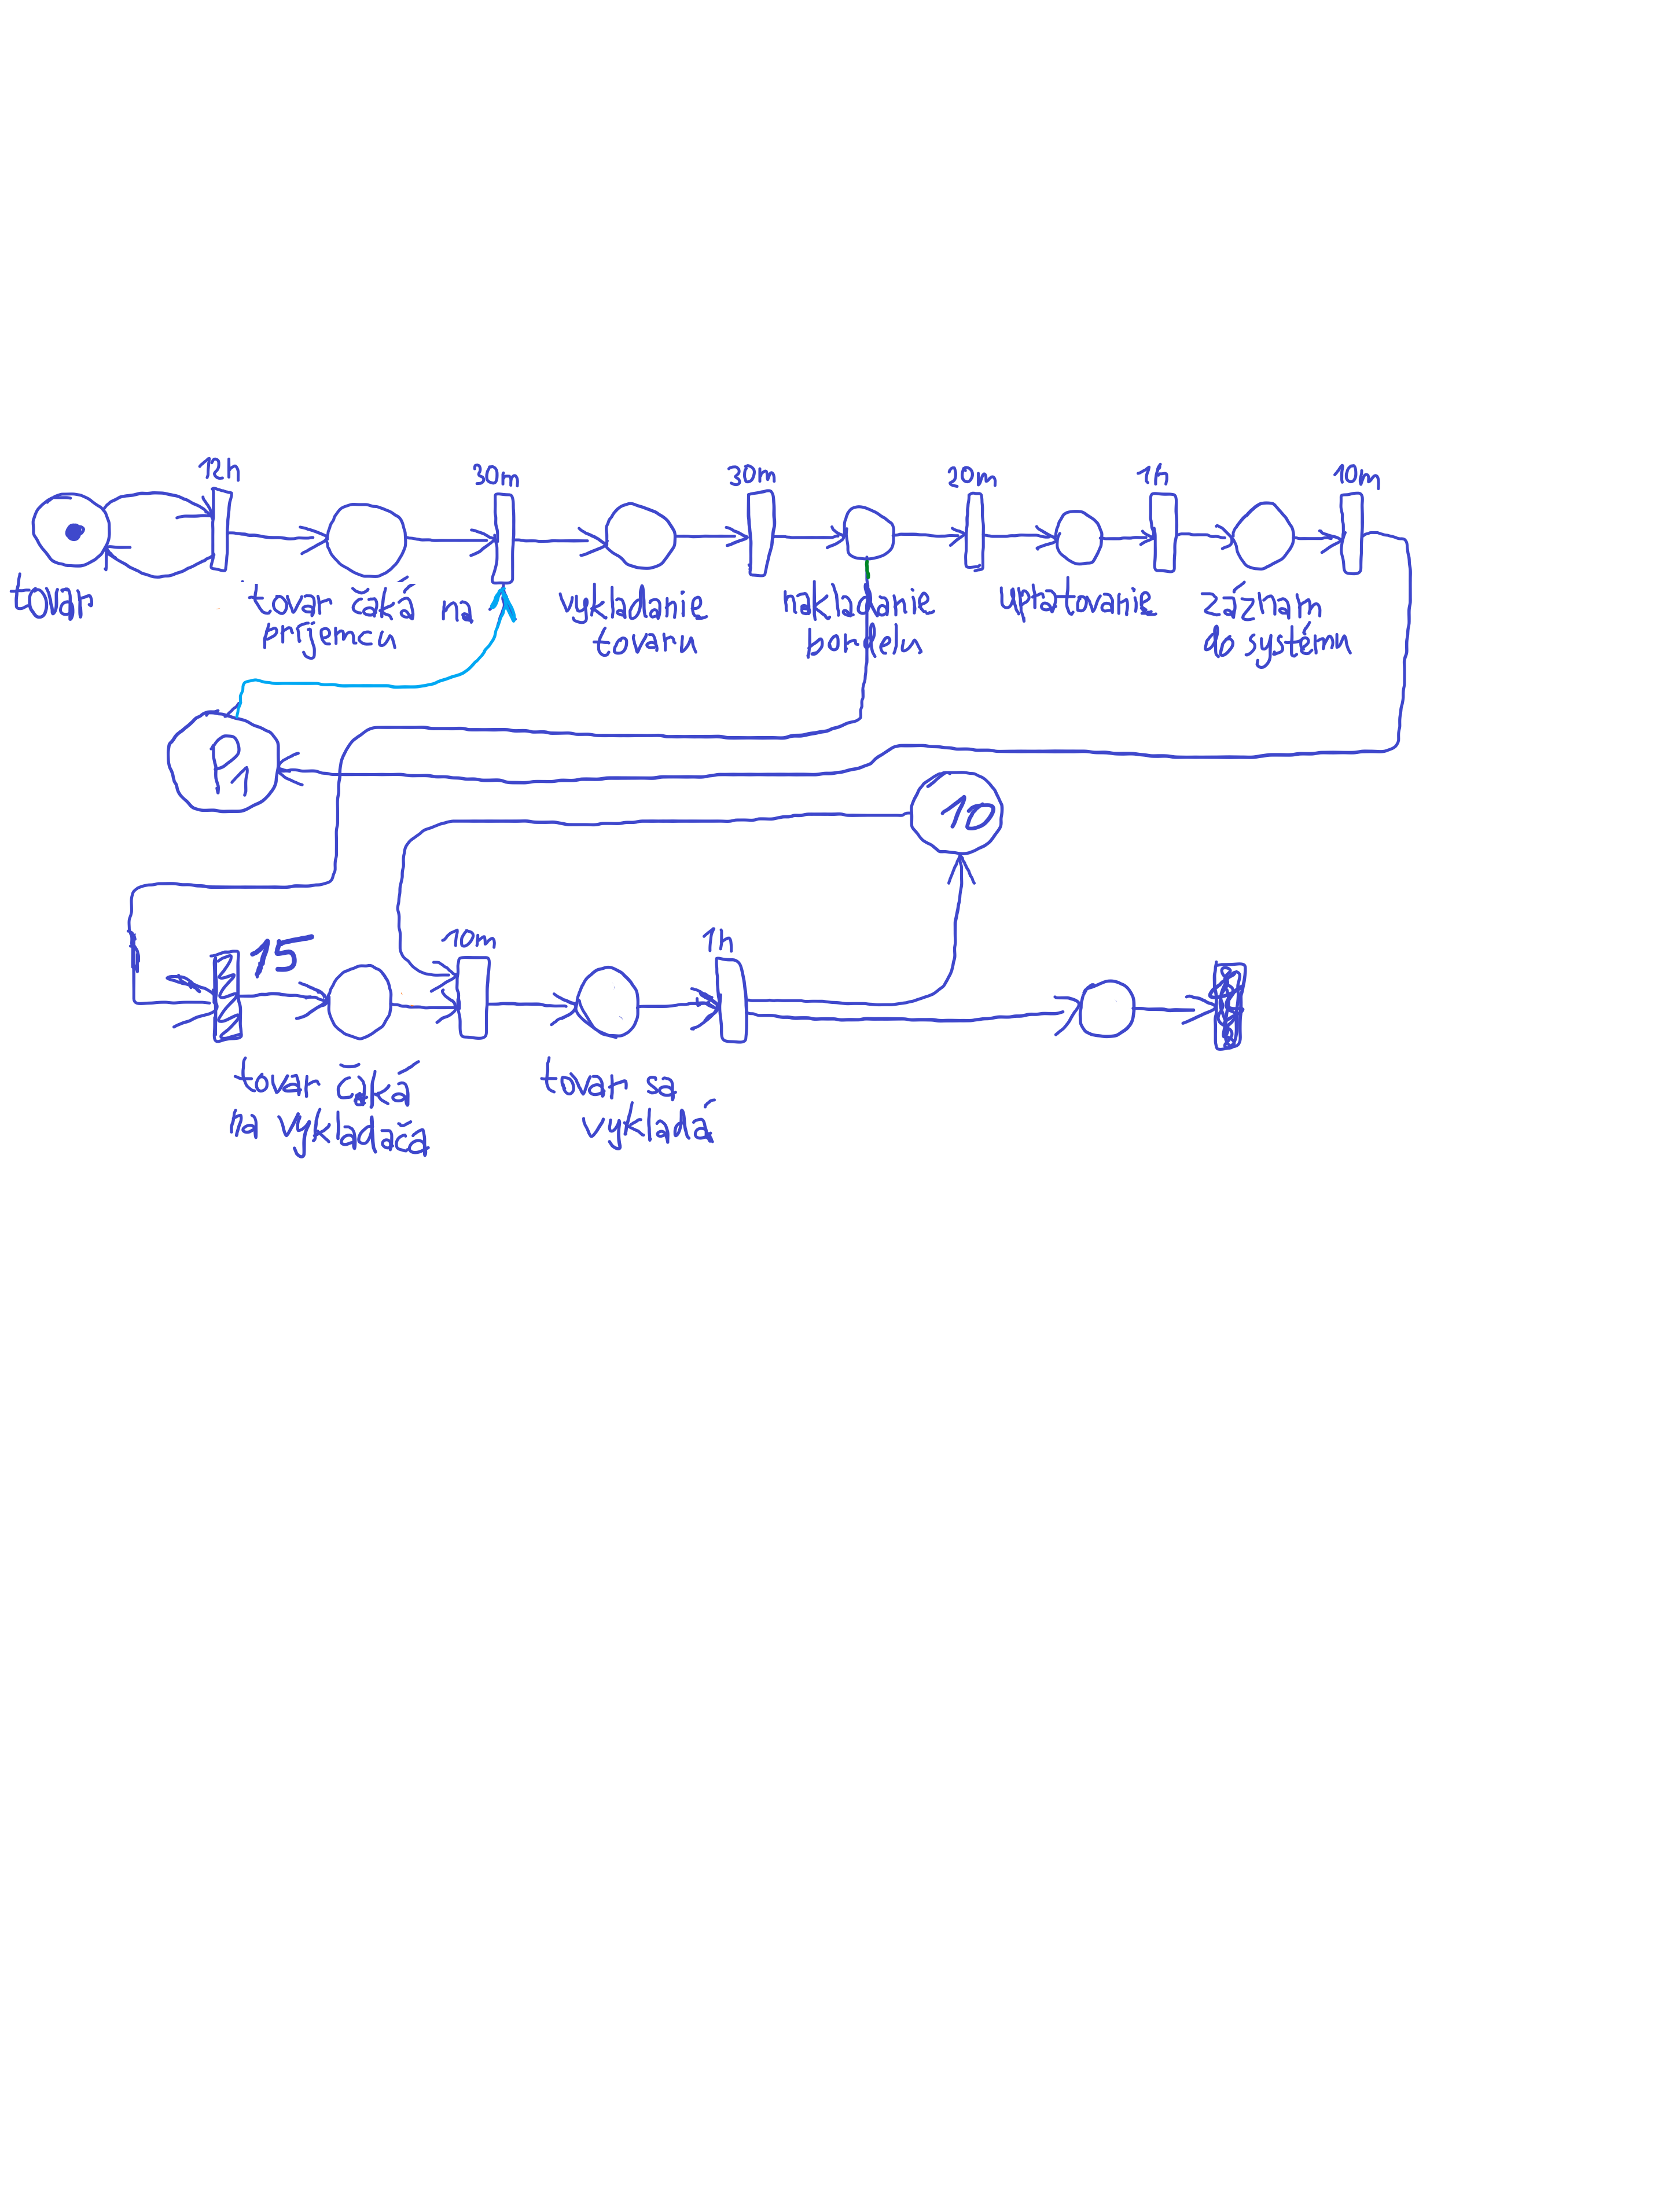 12h
30m
30m
20m
1h
10m
tovar
tovar čaká na
prijemcu
vykladanie
tovaru
nakladanie
bordelu
upratovanie
záznam
do systému
P1
10
15
10m
1h
tovar čaká
na vykladača
tovar sa
vykladá